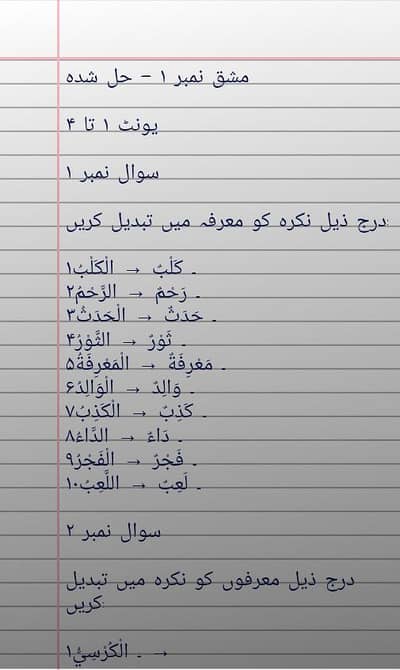 مشق نمبر ۱ – حل شدہ
یونٹ ۱ تا ۴
سوال نمبر ۱
درج ذیل نکرہ کو معرفہ میں تبدیل کریں:
۱۔ كَلْبٌ → الْكَلْبُ
۲۔ رَحْمٌ → الرَّحْمُ
۳۔ حَدَثٌ → الْحَدَثُ
۴۔ ثَوْرٌ → الثَّوْرُ
۵۔ مَعْرِفَةٌ → الْمَعْرِفَةُ
۶۔ وَالِدٌ → الْوَالِدُ
۷۔ كَذِبٌ → الْكَذِبُ
۸۔ دَاءٌ → الدَّاءُ
۹۔ فَجْرٌ → الْفَجْرُ
۱۰۔ لَعِبٌ → اللَّعِبُ
سوال نمبر ۲
درج ذیل معرفوں کو نکرہ میں تبدیل
کریں:
۱۔ الْكُرْسِيُّ →